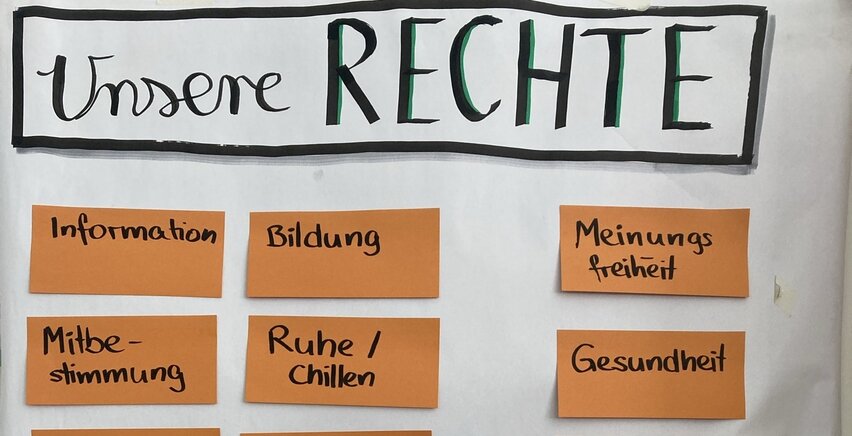 Unsere RECHTE
Information
Bildung
Meinungs
freiheit
Mitbe-
stimmung
Ruhe /
Chillen
Gesundheit